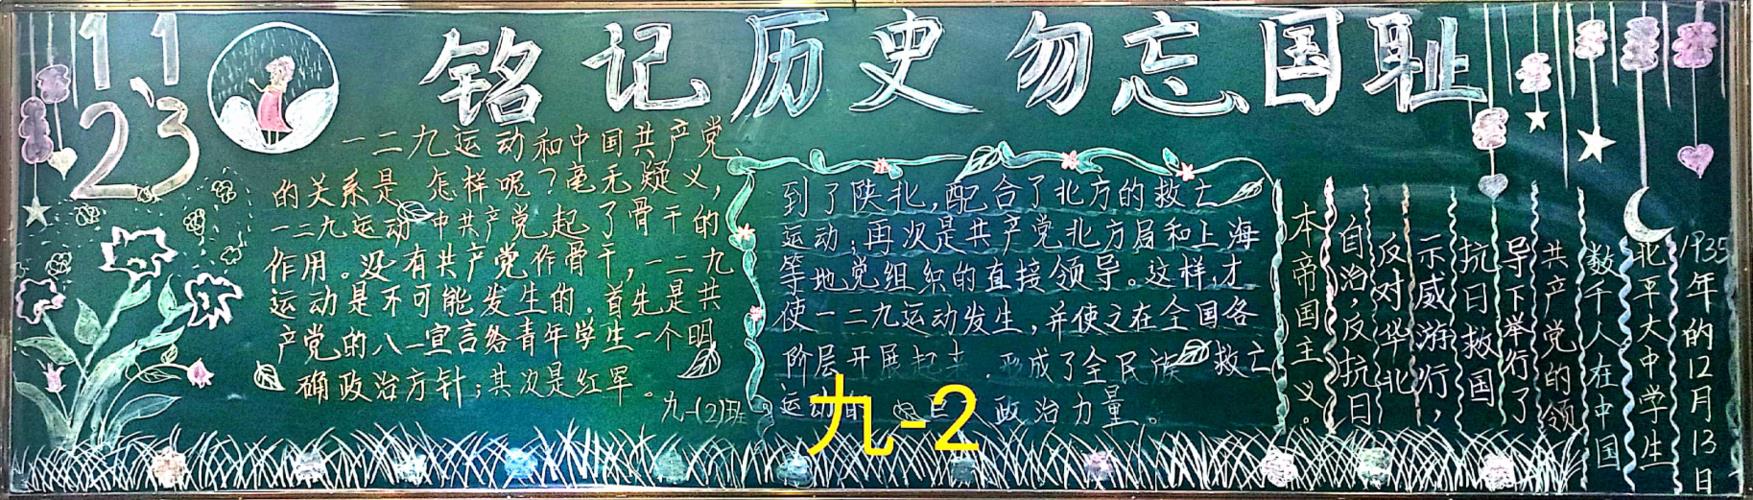 11
23
铭记历史 勿忘国耻
一二九运动和中国共产党
的关系是怎样呢?毫无疑义,
一二九运动中共产党起了骨干的
作用。没有共产党作骨干,一二九
运动是不可能发生的.首先是共
产党的八一宣言给青年学生一个明
确政治方针;其次是红军。
九-(2)班
到了陕北,配合了北方的救亡
运动;再次是共产党北方局和上海
等地党组织的直接领导。这样,才
使一二九运动发生,并使之在全国各
阶层开展起来.形成了全民族救亡
运动的 政治力量。
九-2
1935年的12月13日
北平大中学生
数千人在中国
共产党的领
导下举行了
抗日救国
示威游行,
反对华北
自治,反抗日
本帝国主义。